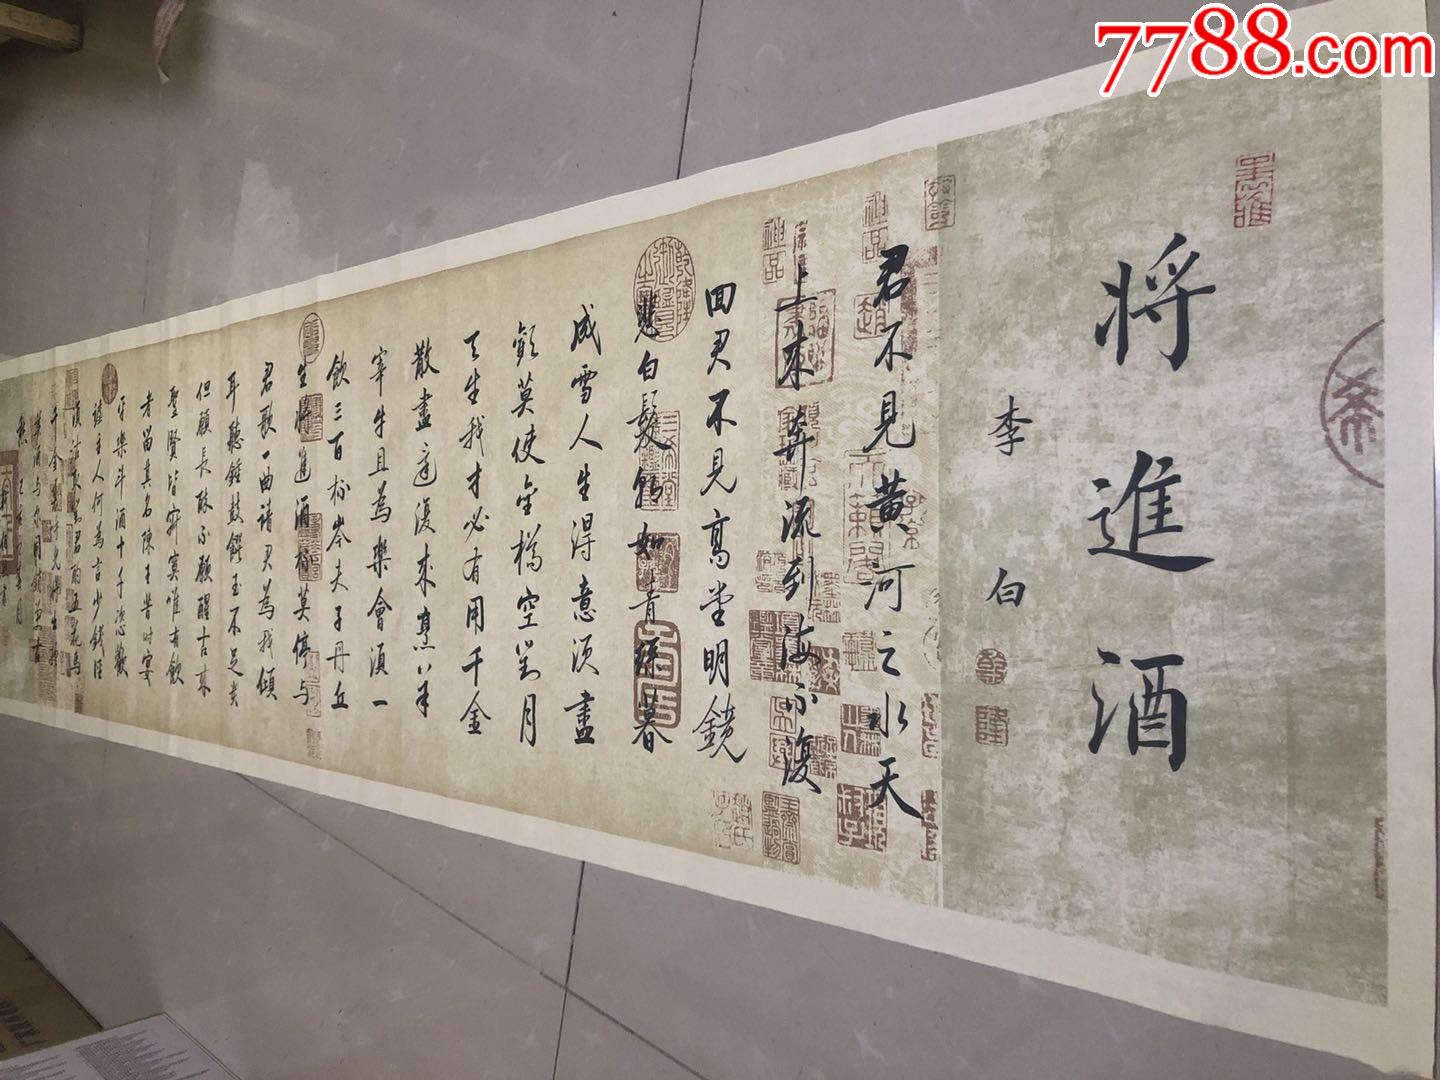 7788.com
將進酒
李白
乾隆
君不見黃河之水天
上來奔流到海不復
回君不見高堂明鏡
悲白髮朝如青絲暮
成雪人生得意須盡
歡莫使金樽空對月
天生我才必有用千金
散盡還復來烹羊
宰牛且為樂會須一
飲三百杯岑夫子丹丘
生將進酒杯莫停與
君歌一曲請君為我傾
耳聽鍾鼓饌玉不足貴
但願長醉不願醒古來
聖賢皆寂寞唯有飲
者留其名陳王昔時宴
平樂斗酒十千恣歡
謔主人何為言少錢徑
須沽取對君酌五花馬
千金裘呼兒將出換
美酒與爾同銷萬古
愁
神品
神品
天籟閣